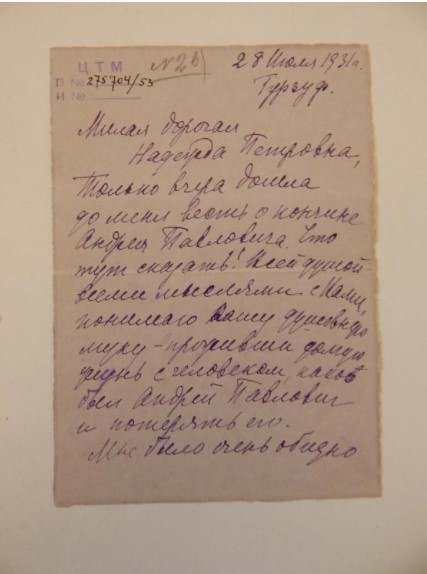 ЦТМ
П № 275704/53
И №
N 2в)
28 Июля 1931 г.
Гурзуф.
Милая дорогая
Надежда Петровна,
Только вчера дошла
до меня весть о кончине
Андрея Павловича. Что
тут сказать! Всей душой
всеми мыслями с Вами,
понимаю вашу душевную
муку – проживши целую
жизнь с человеком, каков
был Андрей Павлович
и потерять его.
Мне было очень обидно